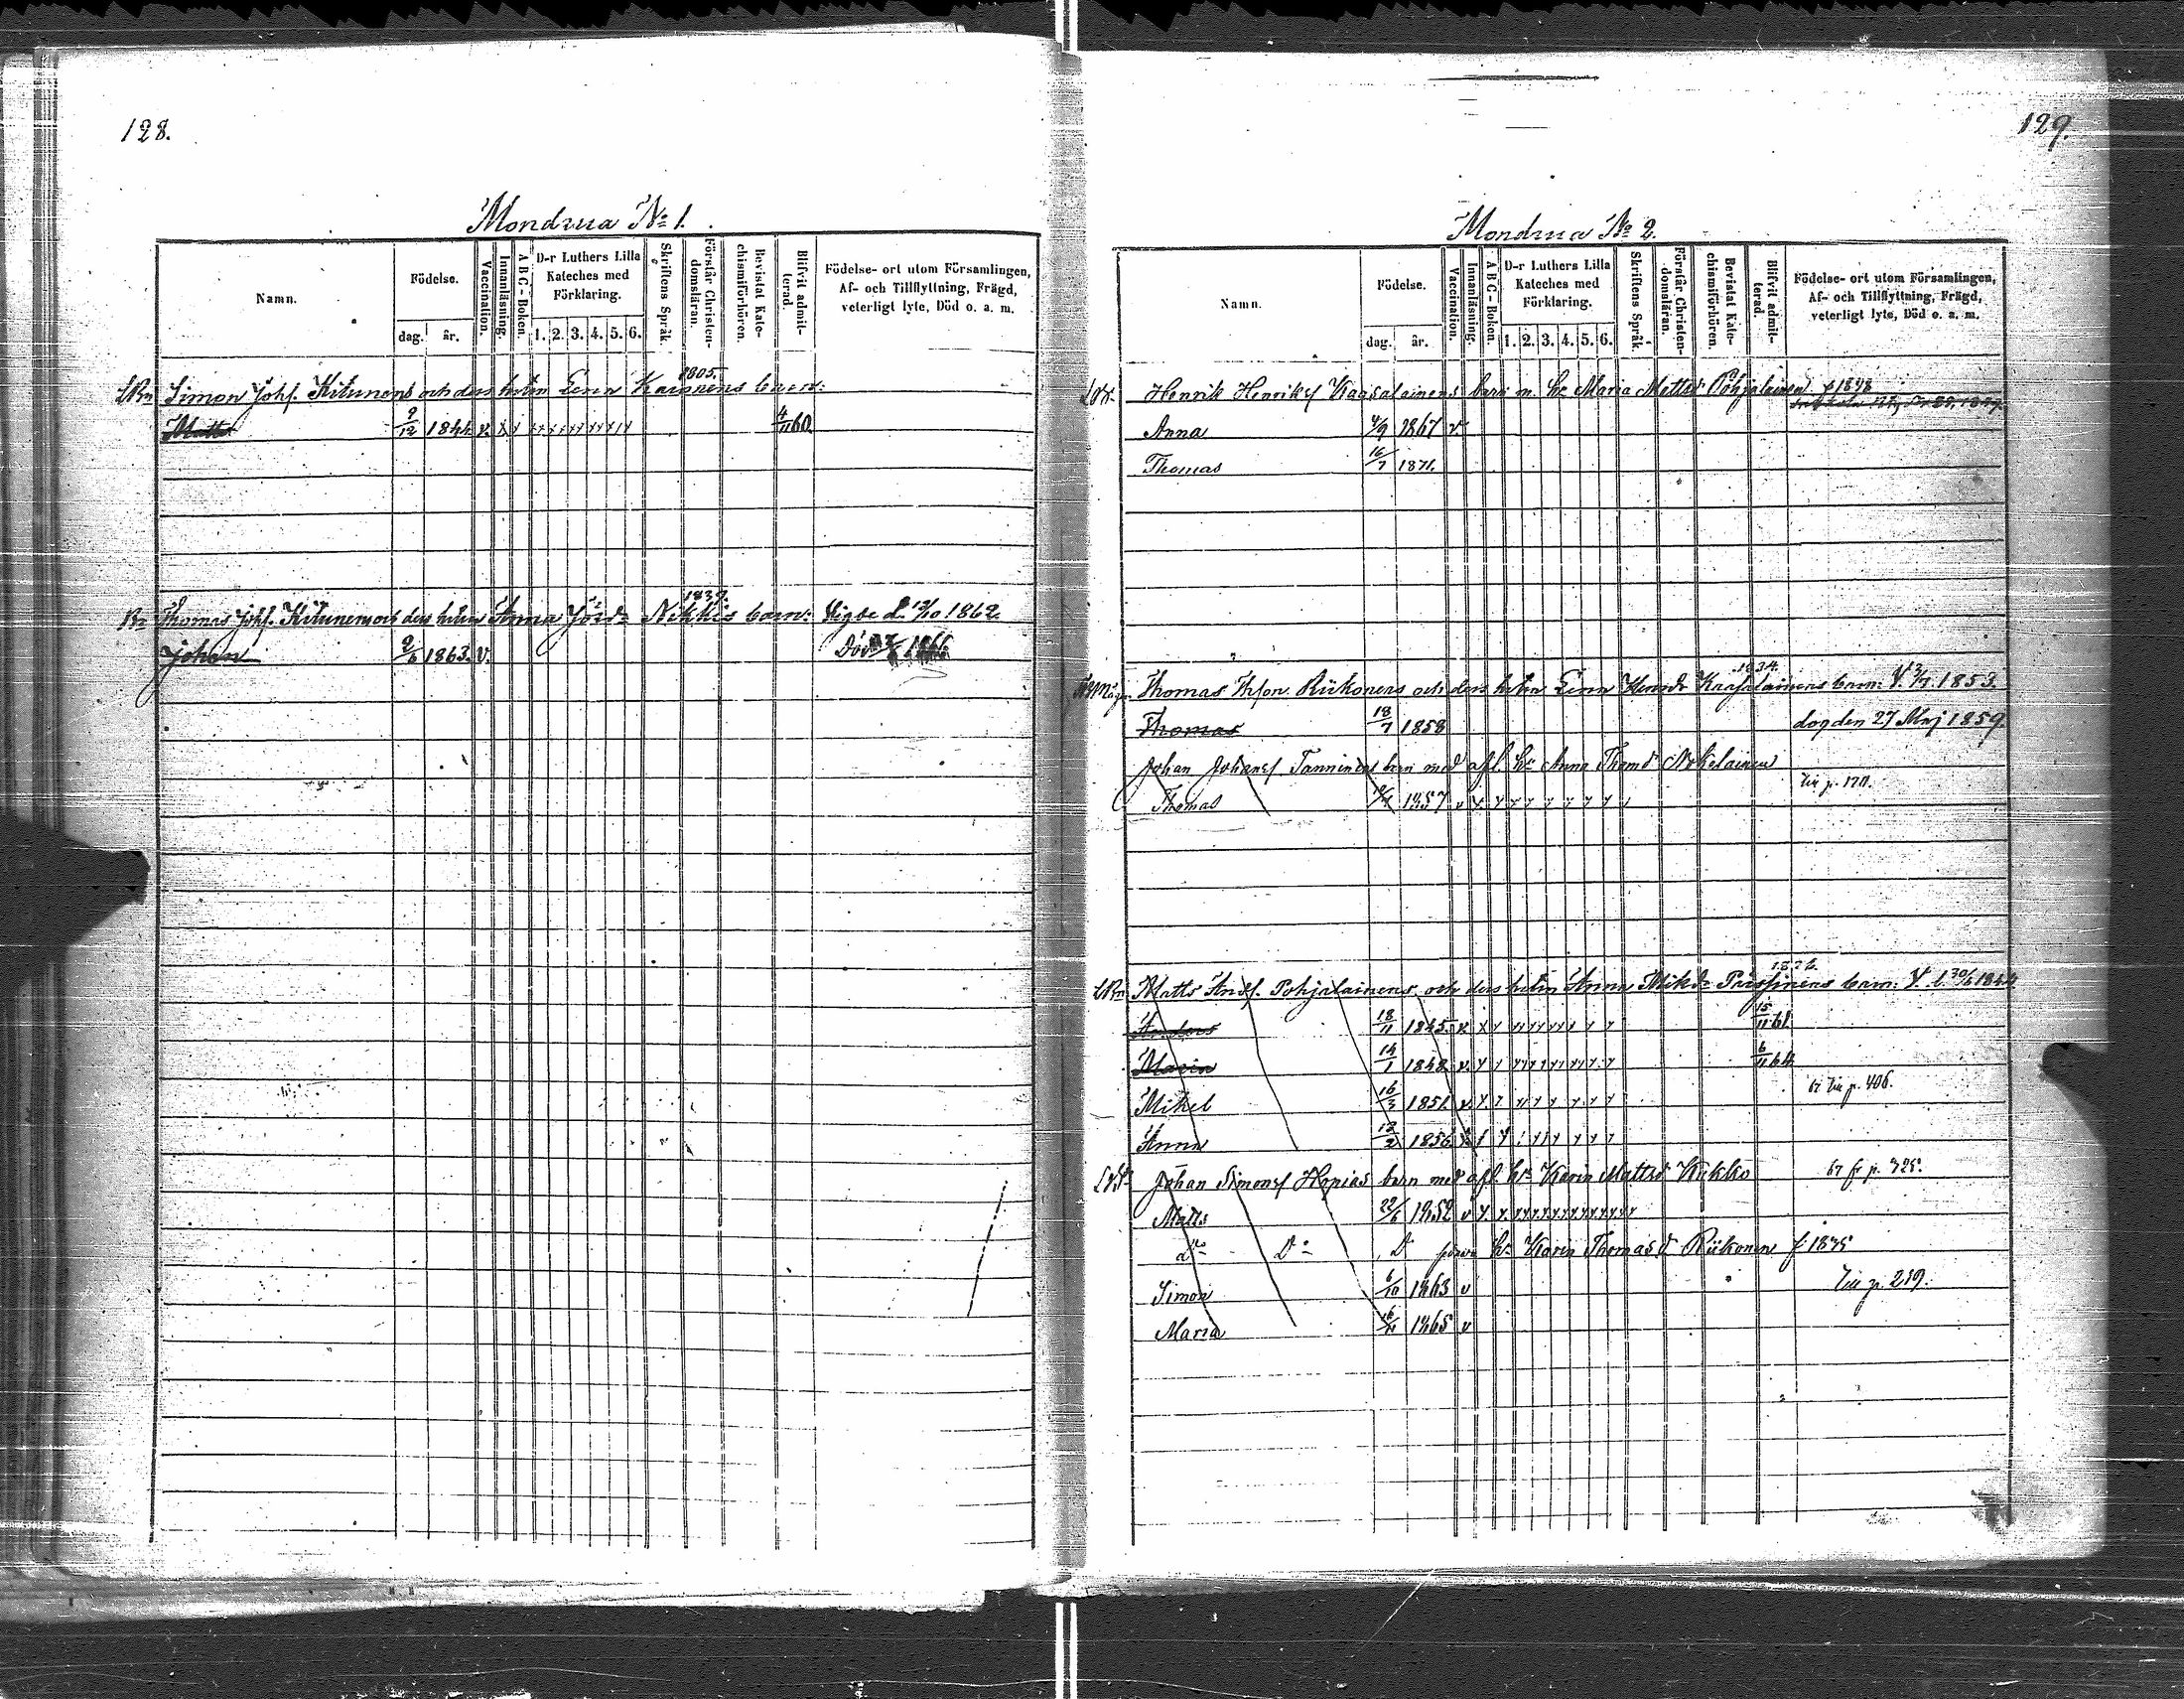 128.
Mondrua No 1.
Namn.
Födelse.
dag. år.
Vaccination.
Innanläsning.
A B C - Boken.
D-r Luthers Lilla
Kateches med
Förklaring.
1. 2. 3. 4. 5. 6.
Skriftens Språk.
Förstår Christen-
domsläran.
Bevistat Kate-
chismiförhören.
Blifvit admit-
terad.
Födelse- ort utom Församlingen,
Af- och Tillflyttning, Frägd,
veterligt lyte, Död o. a. m.
1805.
Simon Johs. Kitunens och dess hustru Karonens barn:
Matts 9/12 1844 v. x x x x x x x x x x 4/11 60.
1837.
Thomas Johs. Kitunens och dess Anna Nikkis barn: Vigde d. 1862.
Johan 2/6 1863. v.
129.
Mondrua No 2.
Namn.
Födelse.
dag. år.
Vaccination.
Innanläsning.
A B C - Boken.
D-r Luthers Lilla
Kateches med
Förklaring.
1. 2. 3. 4. 5. 6.
Skriftens Språk.
Förstår Christen-
domsläran.
Bevistat Kate-
chismiförhören.
Blifvit admit-
terad.
Födelse- ort utom Församlingen,
Af- och Tillflyttning, Frägd,
veterligt lyte, Död o. a. m.
Henrik Henriks Kaasalainens barn m. hu Maria Mattsd Pohjalainen
Anna 4/9 1867 v
Thomas 16/7 1871.
1834.
Thomas Riikonens och dess Kaasalainens barn: V. 1853.
Thomas 18/7 1858 dog den 27 Maj 1859.
Johan Johans Tanninens barn med afl. hu Anna Thomd
Thomas 1857 v x x x x x x x x
Matts Ands. Pohjalainens och dess Anna Mikd. barn: V. 30/6 1844
Anders 18/11 1845. v x x x x x x x x x 15/11 61.
Maria 14/1 1848 v. x x x x x x x x x 6/11 64
Mikel 16/3 1851 v x x x x x x x x
67 Se p. 406.
Anna 12/2 1856
Johan Simons Hopias barn med afl. hu Karin Mattsd Kukko 67 fr p. 725.
Matts 22/6 1852 v x. x. x x x x x x x x x x
Do Do D hu Karin Thomasd Riikonen f 1835
Simon 6/10 1863 v
Se p. 219.
Maria 1865 v